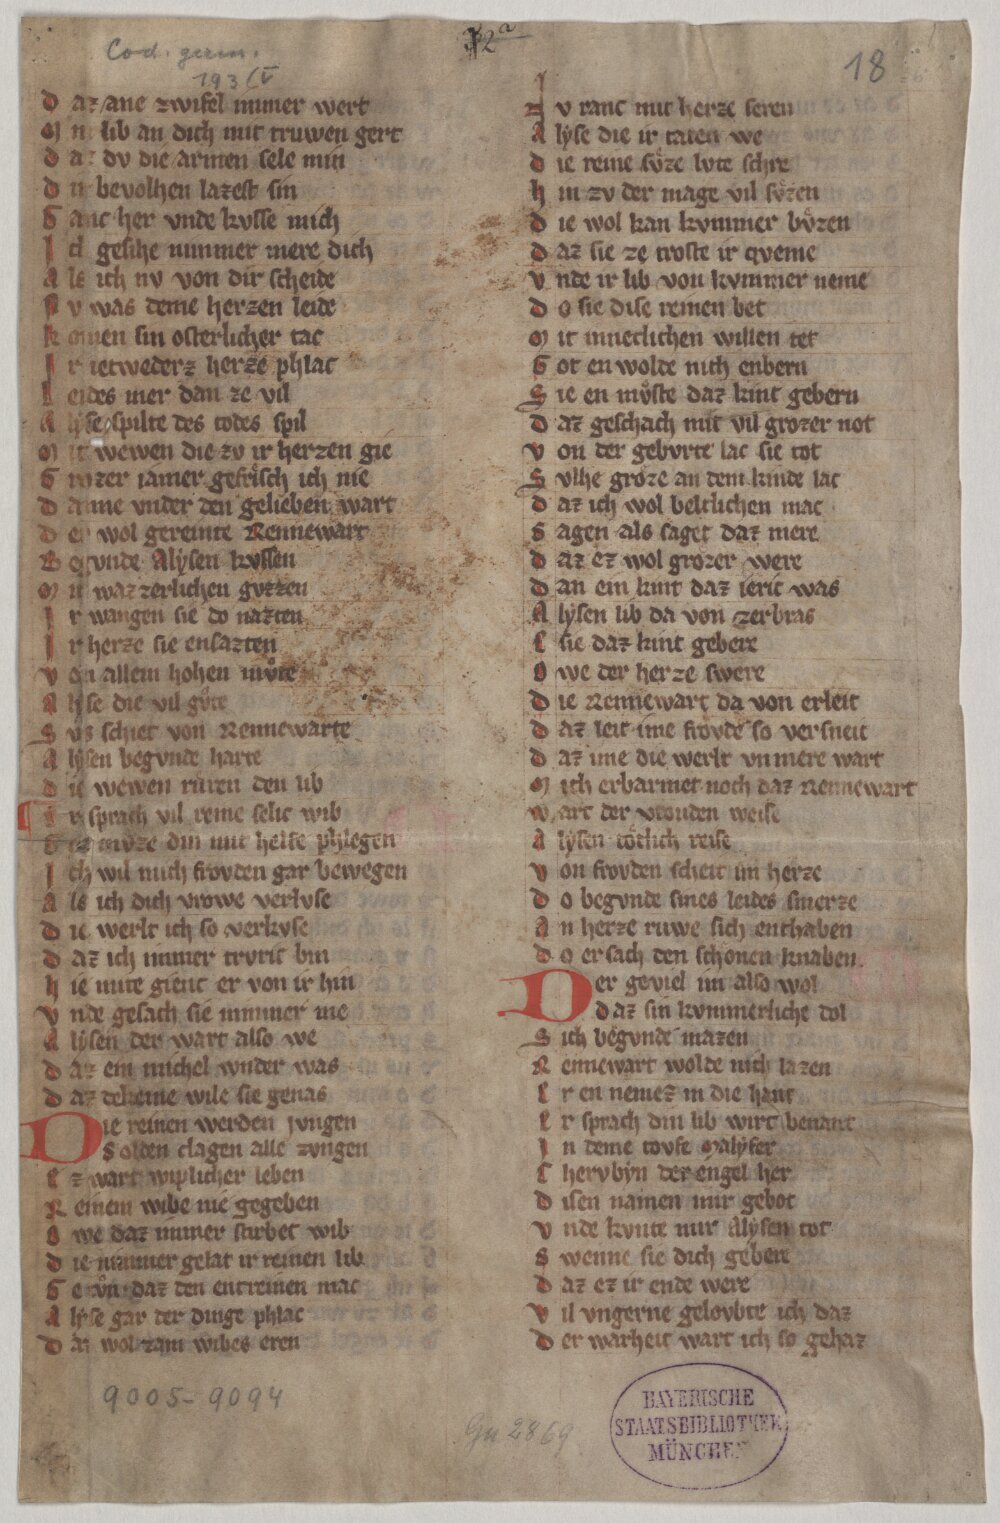 Cod. germ.
193/V
12a
18
D az ane zwifel immer wert
M in lib an dich mit truwen gert
D az dv die armen sele min
D ir bevolhen lazest sin
G anc her vnde kvsse mich
I ch gesihe nimmer mere dich
A ls ich nv von dir scheide
N v was deme herzen leide
K omen sin osterlicher tac
I r ietweders herze phlac
L eides mer dan ze vil
A lyse spilte des todes spil
M it wewen die zv ir herzen gie
G rozer iamer gefrisch ich nie
D anne vnder den gelieben wart
D er wol gereinte Rennewart
B egunde Alysen kvssen
M it wazzerlichen gvzzen
I r wangen sie do nazten
I r herze sie ensazten
V on allem hohen mvte
A lyse die vil gvte
S vs schiet von Rennewarte
A lysen begvnde harte
D ie wewen rvren den lib
E r sprach vil reine selic wib
G ot mvze din mit helfe phlegen
I ch wil mich frovden gar bewegen
A ls ich dich vrowe verlvse
D ie werlt ich so verkvse
D az ich immer trvric bin
H ie mite gienc er von ir hin
V nde gesach sie nimmer me
A lysen der wart also we
D az ein michel wnder was
D az deheine wile sie genas
D ie reinen werden jvngen
S olden clagen alle zvngen
E z wart wiplicher leben
R einem wibe nie gegeben
O we daz immer stirbet wib
D ie nimmer gelat ir reinen lib
G etvn daz den entreinen mac
A lyse gar der dinge phlac
D az wol zam wibes eren
Z v ranc mit herze seren
A lyse die ir taten we
D ie reine svze lvte schre
H in zv der mage vil svzen
D ie wol kan kvmmer bvzen
D az sie ze troste ir qveme
V nde ir lib von kvmmer neme
D o sie dise reinen bet
M it inneclichen willen tet
G ot en wolde nich enbern
S ie en mvste daz kint gebern
D az geschach mit vil grozer not
V on der gebvrte lac sie tot
S vlhe groze an dem kinde lac
D az ich wol beltlichen mac
S agen als saget daz mere
D az ez wol grozer were
D an ein kint daz ieric was
A lysen lib da von zerbras
E sie daz kint gebere
O we der herze swere
D ie Rennewart da von erleit
D az leit ime frovde so versneit
D az ime die werlt vnmere wart
M ich erbarmet noch daz Rennewart
W art der vrouden weise
A lysen totlich reise
V on frovden scheit im herze
D o begvnde sines leides smerze
A n herze rvwe sich enthaben
D o er sach den schonen knaben
D er geviel im also wol
D az sin kvmmerliche dol
S ich begvnde mazen
R ennewart wolde nich lazen
E r en nemez in die hant
E r sprach din lib wirt benant
I n deme tovfe Malyfer
C hervbyn der engel her
D isen namen mir gebot
V nde kvnte mir Alysen tot
S wenne sie dich gebere
D az ez ir ende were
V il vngerne gelovbte ich daz
D er warheit wart ich so gehaz
9005-9094
Gu 2869
BAYERISCHE
STAATSBIBLIOTHEK
MÜNCHEN